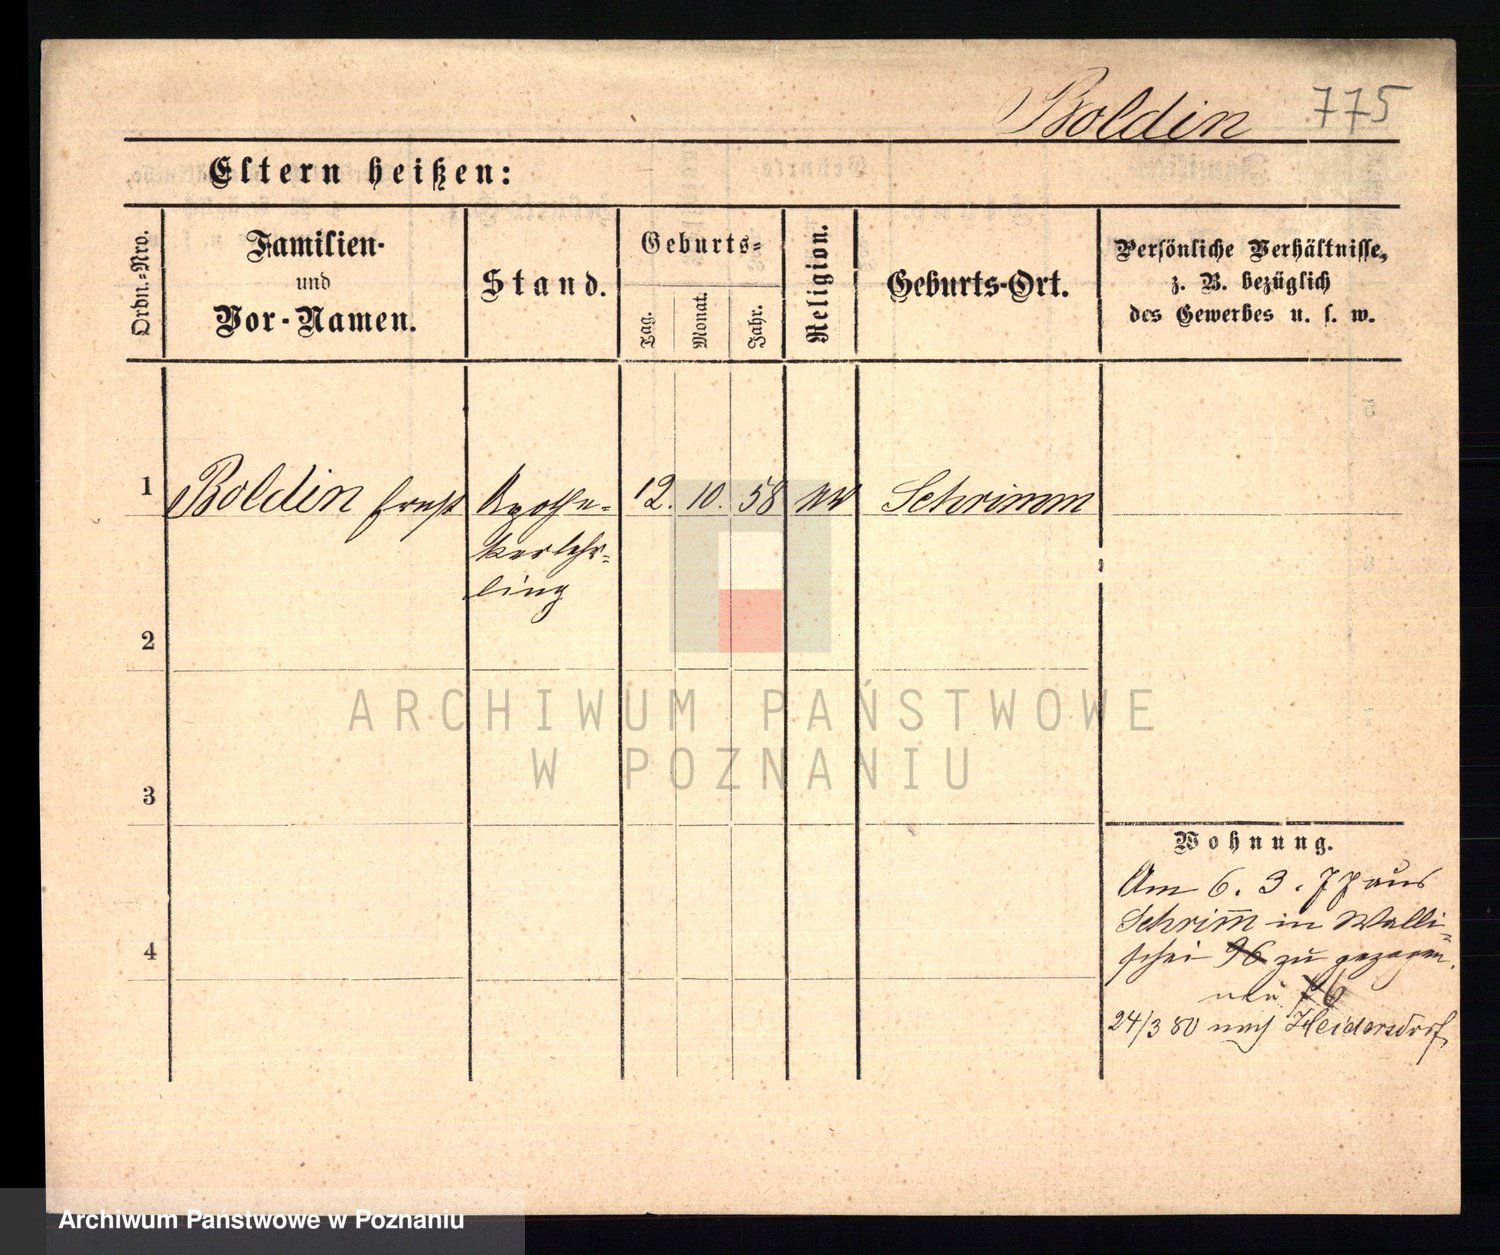 Boldin 775
Eltern heißen:
Ordn.-Nro.
Familien-
und
Vor-Namen.
Stand.
Geburts-
Tag.
Monat.
Jahr.
Religion.
Geburts-Ort.
Persönliche Verhältnisse,
z. B. bezüglich
des Gewerbes u. s. w.
1 Boldin Ernst Apothe- 12. 10. 58 Schrimm
kerlehr-
ling
2
3
4
Wohnung.
Am 6. 3. 77 aus
Schrim̄ in Walli-
schei 96 zu gezogen.
24/3 80 nach Heidersdorf
ARCHIWUM PAŃSTWOWE
W POZNANIU
Archiwum Państwowe w Poznaniu